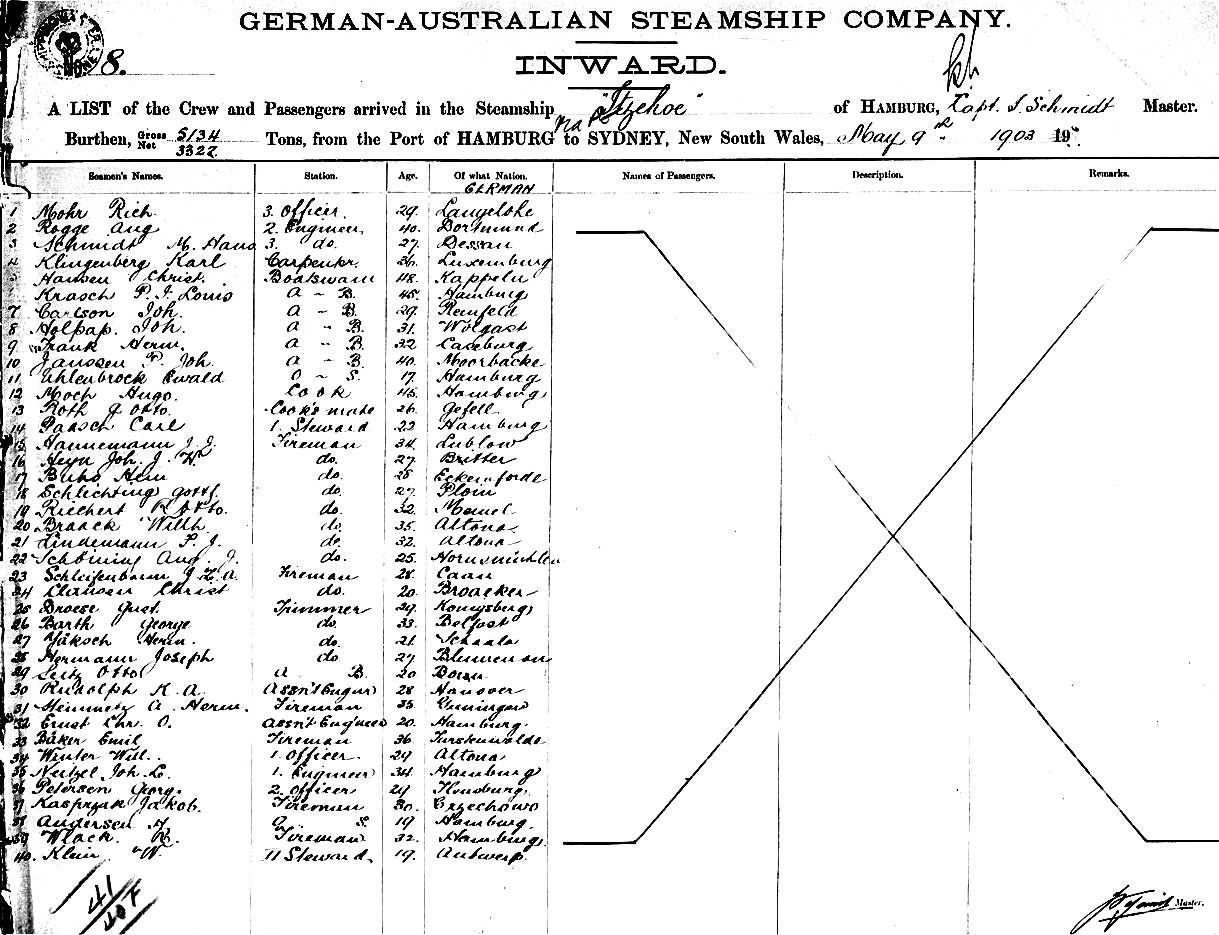 GERMAN-AUSTRALIAN STEAMSHIP COMPANY.
8.
INWARD.
A LIST of the Crew and Passengers arrived in the Steamship "Itzehoe" of HAMBURG, Capt. J. Schmidt Master.
Burthen, Gross 5134 Net 3327 Tons, from the Port of HAMBURG to SYDNEY, New South Wales, May 9th 1903 19
Seamen's Names. Station. Age. Of what Nation. Names of Passengers. Description. Remarks.
GERMAN
1 Mohr Rich. 3. Officer. 29.
2 Rogge Aug 2. Engineer, 40. Dortmund
3 Schmidt M. Hans 3. do. 27. Dessau
4 Klingenberg Karl Carpenter. 36. Luxemburg
5 Hansen Christ. Boatswain 48. Kappeln
Krasch P. J. Louis A - B. 45. Hamburg
7 Carlson Joh. A - B. 29. Reinfeld
8 Holpap. Joh. A - B. 31. Wolgast
9 Frank Herm. A - B. 22 Caseburg
10 Janssen P. Joh. A - B. 40. Moorbacke
11 Uhlenbrock Ewald O - S. 17. Hamburg
12 Moch Hugo. Cook 45. Hamburg
13 Roth G Otto. Cook's mate 26. Gefell
14 Paasch Carl 1. Steward 22 Hamburg
15 Hannemann J. J. Fireman 34. Lublow
16 Heyn Joh. J. W. do. 27. Britter
17 Buhs Hein do. 28 Eckernforde
18 Schlichting Gottf. do. 27. Ploin
19 Riechert R Otto. do. 32. Memel
20 Braack Willh do. 35. Altona
21 Lindemann P. J. do. 32. Altona
22 Schöning Aug. J. do. 25.
23 Schleifenbaum J. L. A. Fireman 28. Caan
24 Clausen Christ do. 20. Broacker
25 Droese Gust. Trimmer 29. Konigsberg
26 Barth George do. 33. Belfast
27 Jäksch Herm. do. 21. Schaala
28 Hermann Joseph do 27 Blumenau
29 Seitz Otto A B. 20
30 Rudolph K. A. Assn't Engnr 28 Hanover
31 Steinmetz A. Herm. Fireman 35.
32 Ernst Chr. O. Assn't Engineer 20. Hamburg.
33 Bäker Emil Fireman 36. Furstenwalde
34 Winter Will.. 1. Officer. 29 Altona
35 Neitzel Joh. L. 1. Engineer 34. Hamburg
36 Petersen Georg. 2. Officer 29 Flensburg.
37 Kasprzak Jakob. Fireman 30. Brzechowo
38 Andersen H O. S. 19 Hamburg.
39 Wlack. R. Fireman 32. Hamburg.
40. Klein W. 11 Steward, 19. Antwerp.
41
40 F
Master.